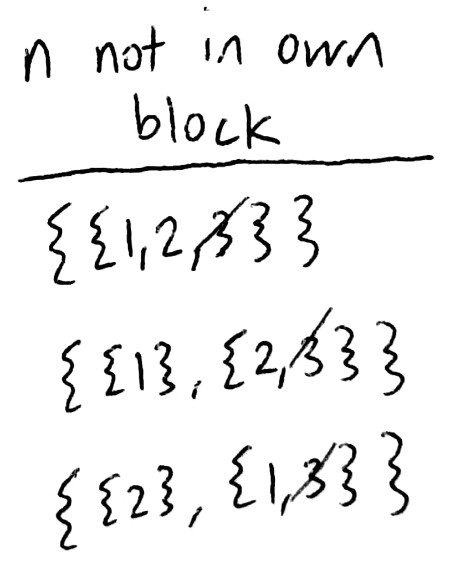 n not in own
block
{{1,2,3}}
{{1},{2,3}}
{{2},{1,3}}